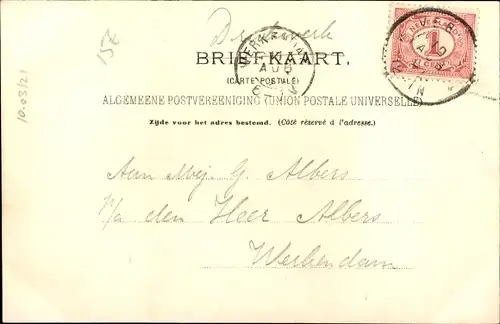 Drukwerk
15Z
10.03/21
WERKENDAM
AUG
NEDERLAND
1
CENT
BRIEFKAART.
(CARTE POSTALE)
ALGEMEENE POSTVEREENIGING (UNION POSTALE UNIVERSELLE)
Zijde voor het adres bestemd. (Côté réservé à l'adresse.)
Aan Mej. G. Albers
p/a den Heer Albers
Werkendam